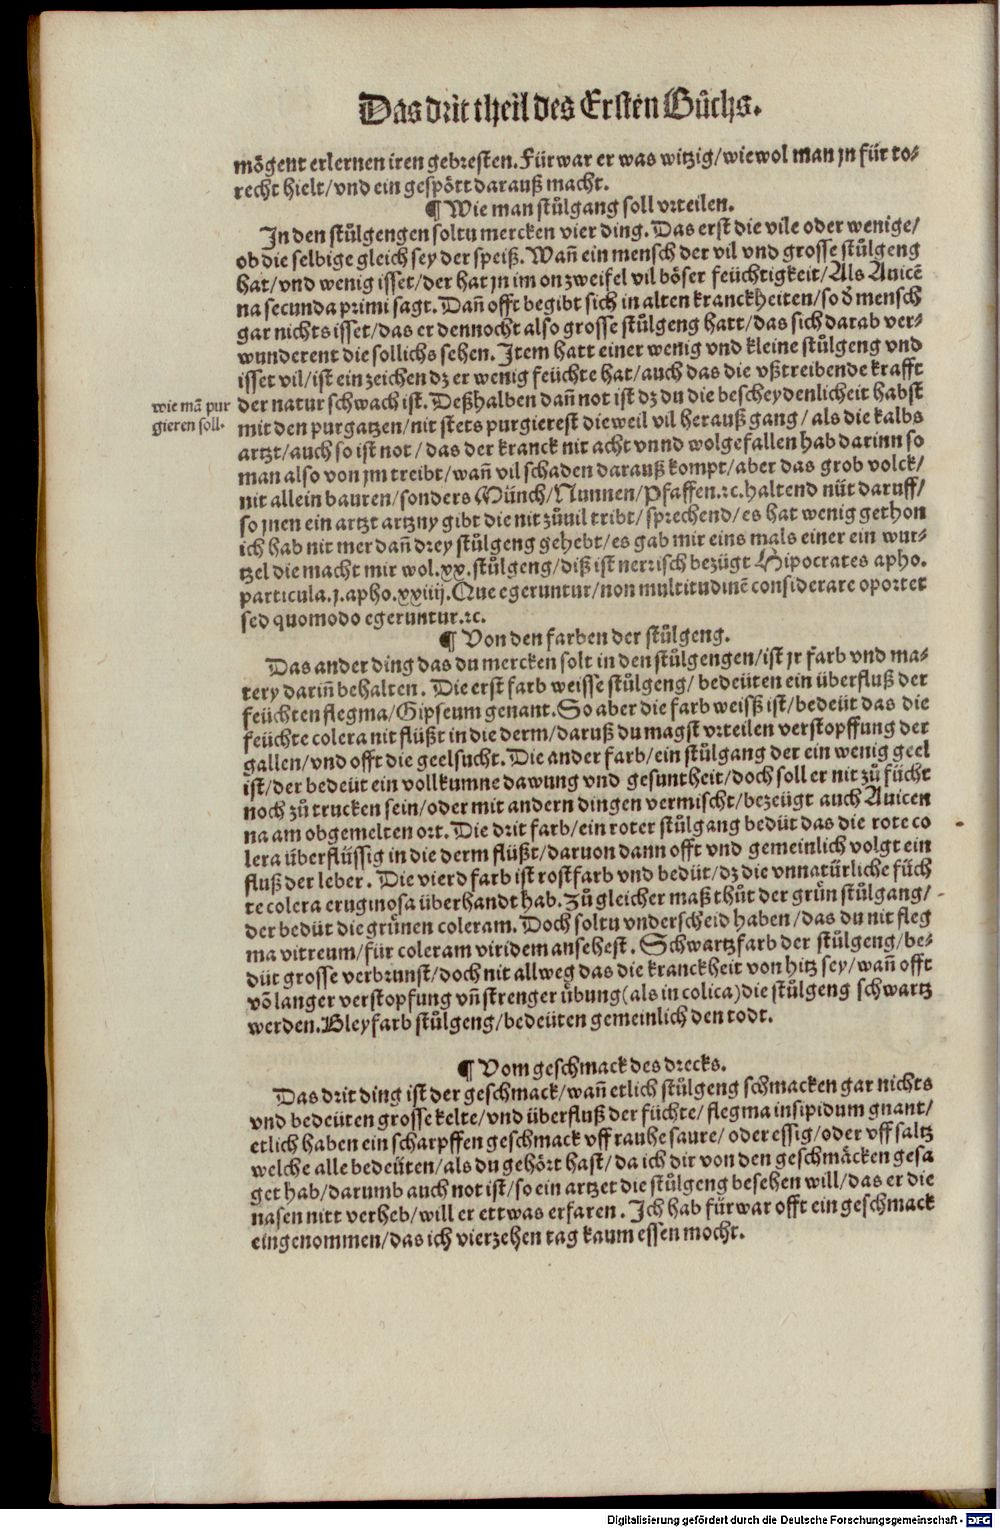 Das drit theil des Ersten Bůchs.
mőgent erlernen iren gebresten. Fürwar er was witzig/wiewol man jn für to-
recht hielt/vnd ein gespőtt darauß macht.
¶ Wie man stůlgang soll vrteilen.
In den stůlgengen soltu mercken vier ding. Das erst die vile oder wenige/
ob die selbige gleich sey der speiß. Wañ ein mensch der vil vnd grosse stůlgeng
hat/vnd wenig isset/der hat jn im on zweifel vil bőser feüchtigkeit/Als Auicē
na secunda primi sagt. Dañ offt begibt sich in alten kranckheiten/so d̕ mensch
gar nichts isset/das er dennocht also grosse stůlgeng hatt/das sich darab ver-
wunderent die sollichs sehen. Item hatt einer wenig vnd kleine stůlgeng vnd
isset vil/ist ein zeichen dz er wenig feüchte hat/auch das die vßtreibende krafft
wie mā pur
gieren soll.
der natur schwach ist. Deßhalben dañ not ist dz du die bescheydenlicheit habst
mit den purgatzen/nit stets purgierest dieweil vil herauß gang/als die kalbs
artzt/auch so ist not/das der kranck nit acht vnnd wolgefallen hab darinn so
man also von jm treibt/wañ vil schaden darauß kompt/aber das grob volck/
nit allein bauren/sonders Münch/Nunnen/Pfaffen.ꝛc.haltend nüt daruff/
so jnen ein artzt artzny gibt die nit zůuil tribt/sprechend/es hat wenig gethon
ich hab nit mer dañ drey stůlgeng gehebt/es gab mir eins mals einer ein wur-
tzel die macht mir wol.xx.stůlgeng/diß ist nerrisch bezügt Hipocrates apho.
particula.j.apho.xxiiij.Que egeruntur/non multitudinē considerare oportet
sed quomodo egeruntur.ꝛc.
¶ Von den farben der stůlgeng.
Das ander ding das du mercken solt in den stůlgengen/ist jr farb vnd ma-
tery dariñ behalten. Die erst farb weisse stůlgeng/bedeüten ein überfluß der
feüchten flegma/Gipseum genant. So aber die farb weisß ist/bedeüt das die
feüchte colera nit flüßt in die derm/daruß du magst vrteilen verstopffung der
gallen/vnd offt die geelsucht. Die ander farb/ein stůlgang der ein wenig geel
ist/der bedeüt ein vollkumne dawung vnd gesuntheit/doch soll er nit zů fücht
noch zů trucken sein/oder mit andern dingen vermischt/bezeügt auch Auicen
na am obgemelten ort. Die drit farb/ein roter stůlgang bedüt das die rote co
lera überflüssig in die derm flüßt/daruon dann offt vnd gemeinlich volgt ein
fluß der leber. Die vierd farb ist rostfarb vnd bedüt/dz die vnnatürliche füch
te colera eruginosa überhandt hab. Zů gleicher maß thůt der grün stůlgang/
der bedüt die grůnen coleram. Doch soltu vnderscheid haben/das du nit fleg
ma vitreum/für coleram viridem ansehest. Schwartzfarb der stůlgeng/be-
düt grosse verbrunst/doch nit allweg das die kranckheit von hitz sey/wañ offt
vō langer verstopfung vñ strenger ůbung(als in colica)die stůlgeng schwartz
werden. Bleyfarb stůlgeng/bedeüten gemeinlich den todt.
¶ Vom geschmack des drecks.
Das drit ding ist der geschmack/wañ etlich stůlgeng schmacken gar nichts
vnd bedeüten grosse kelte/vnd überfluß der füchte/flegma insipidum gnant/
etlich haben ein scharpffen geschmack vff rauhe saure/oder essig/oder vff saltz
welche alle bedeüten/als du gehőrt hast/da ich dir von den geschmäcken gesa
get hab/darumb auch not ist/so ein artzet die stůlgeng besehen will/das er die
nasen nitt verheb/will er ettwas erfaren. Ich hab fürwar offt ein geschmack
eingenommen/das ich vierzehen tag kaum essen mocht.
Digitalisierung gefördert durch die Deutsche Forschungsgemeinschaft - DFG